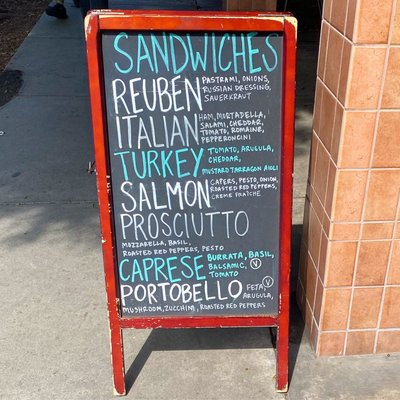 SANDWICHES
REUBEN PASTRAMI, ONIONS,
RUSSIAN DRESSING,
SAUERKRAUT
ITALIAN HAM, MORTADELLA,
SALAMI, CHEDDAR,
TOMATO, ROMAINE,
PEPPERONCINI
TURKEY TOMATO, ARUGULA,
CHEDDAR,
MUSTARD TARRAGON AIOLI
SALMON CAPERS, PESTO, ONION,
ROASTED RED PEPPERS,
CREME FRAÎCHE
PROSCIUTTO
MOZZARELLA, BASIL,
ROASTED RED PEPPERS, PESTO
CAPRESE BURRATA, BASIL,
BALSAMIC, V
TOMATO
PORTOBELLO FETA, V
ARUGULA,
MUSHROOM, ZUCCHINI, ROASTED RED PEPPERS